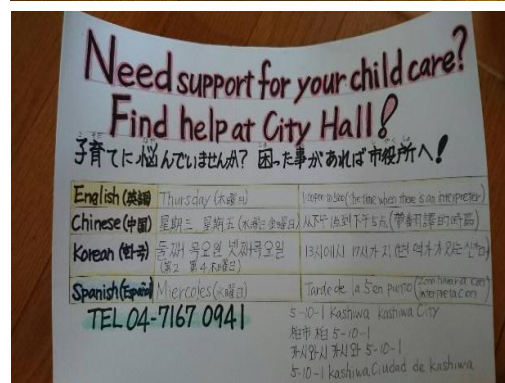 Need support for your child care?
Find help at City Hall!
子育てに悩んでいませんか? 困った事があれば市役所へ!
English (英語) Thursday (木曜日) 1:00pm to 5:00 (the time when there is an interpreter)
Chinese (中国) 星期三、星期五 (水曜と金曜日) 从下午1点到下午5点 (带翻译的时间)
Korean (한국) 둘째 목요일 넷째목요일 13시에서 17시까지
(第2 第4木曜日)
Spanish (Español) Miercoles (水曜日) Tarde de la 5 en punto
interpretación
TEL 04-7167 0941
5-10-1 Kashiwa Kashiwa City
柏市 柏 5-10-1
카시와시 카시와 5-10-1
5-10-1 kashiwa Ciudad de kashiwa